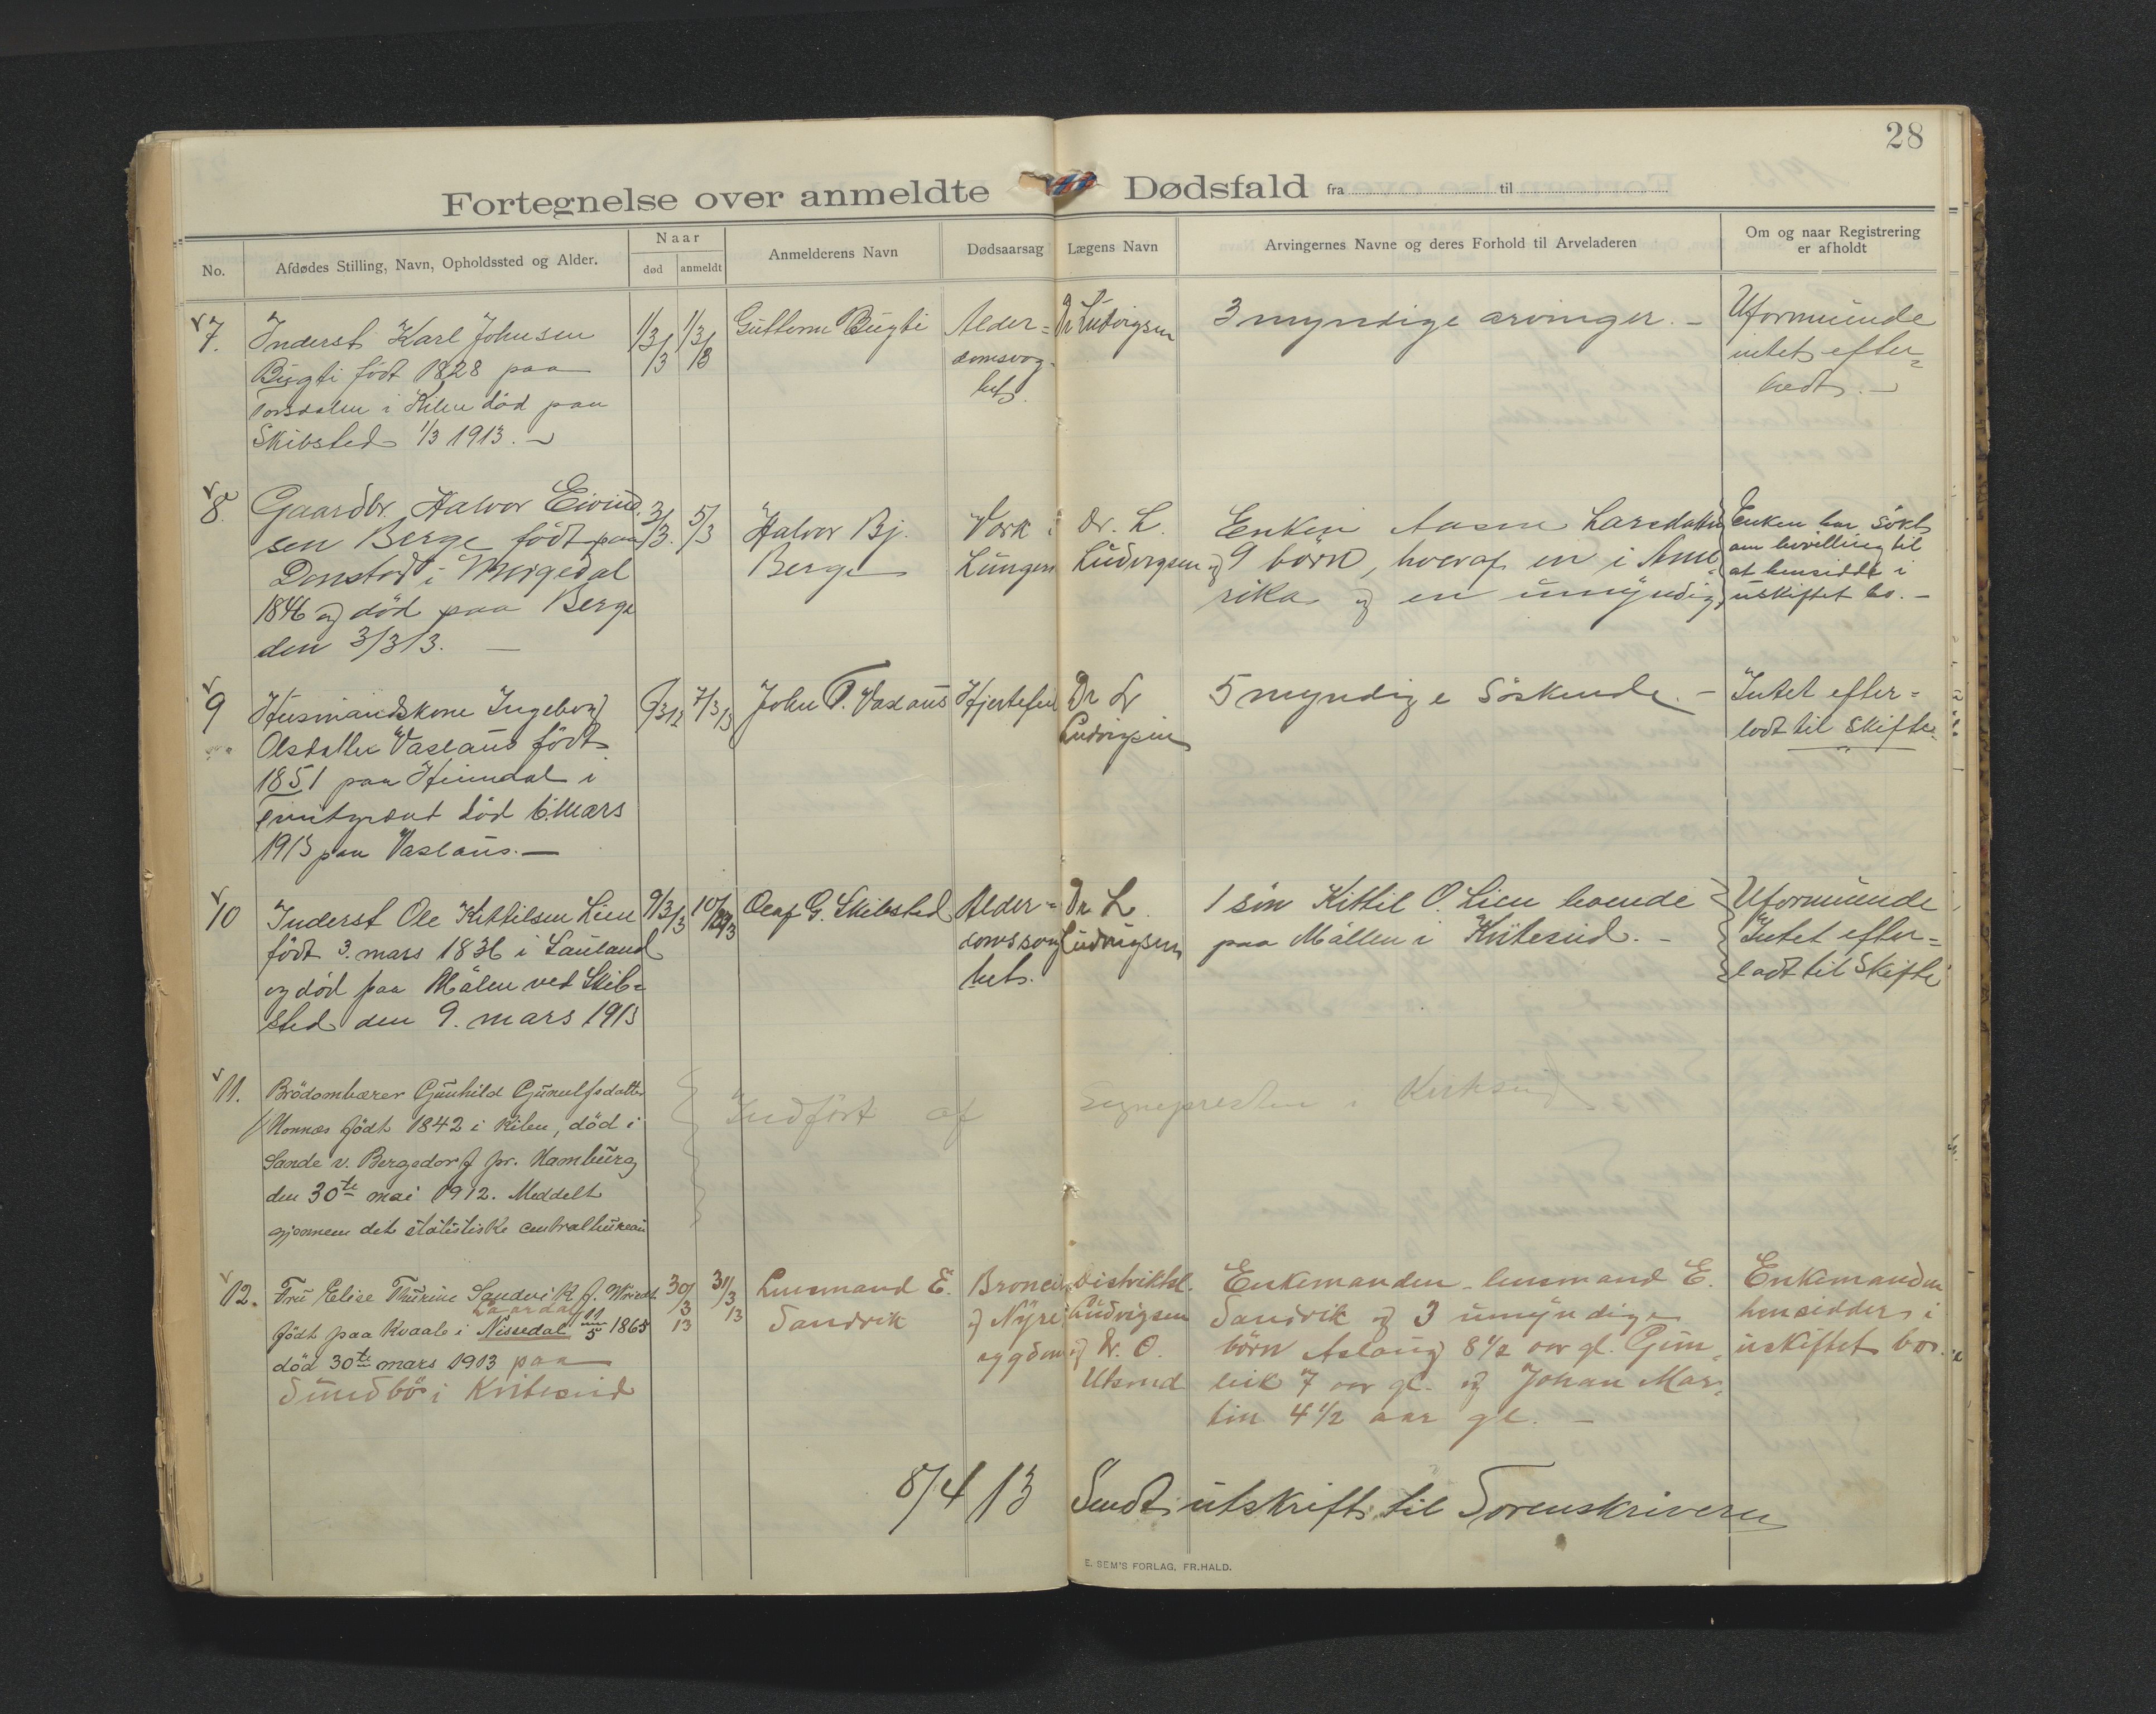 28
Fortegnelse over anmeldte Dødsfald fra til
No.
Afdødes Stilling, Navn, Opholdssted og Alder.
Naar
død
anmeldt
Anmelderens Navn
Dødsaarsag
Lægens Navn
Arvingernes Navne og deres Forhold til Arveladeren
Om og naar Registrering
er afholdt
7.
Inderst Karl Johnsen
Bugti født 1828 paa
i Kilen død paa
Skibsted 1/3 1913.
1/3 13
1/3 13
Guttorm Bugti
Alder=
domssvag-
het.
Dr Ludvigsen
3 myndige arvinger. –
Uformuende
intet efter=
ladt. –
8.
Gaardbr. Halvor Eivind
sen Berge født paa
i Morgedal
1846 og død paa Berge
den 3/3 13. –
3/3 13.
5/3
Halvor Bj.
Berge
Værk i
Lungen
Dr. L.
Ludvigsen
Enken Aasne Larsdatter
og 9 børn, hvoraf en i Ame
rika og en umyndig
Enken har søkt
om bevilling til
at hensidde i
uskiftet bo. –
9
Husmandskone Ingeborg
Olsdatter Vaslaus født
1851 paa Heimdal i
død 6. Mars
1913 paa Vaslaus. –
7/3 13
John T. Vaslaus
Hjertefeil
Dr L
Ludvigsen
5 myndige søskende. –
Intet efter=
ladt til Skifte
10
Inderst Ole Kittilsen Lien
født 3. mars 1836 i Lauland
og død paa Målen ved Skib=
sted den 9. mars 1913
9/3 13
10/3 13
Olaf G. Skibsted
Alder=
domssvag
het.
Dr L.
Ludvigsen
1 søn Kittil O. Lien boende
paa Mållen i Kviteseid. –
Uformuende
Intet efter=
ladt til Skifte
11.
Brødombærer Gunhild Gunulfsdatter
Honnæs født 1842 i Kilen, død i
Sande v. Bergedorf pr. Hamburg
den 30te mai 1912. Meddelt
gjennem det statistiske centralbureau
Indført af
sognepresten i
12.
Fru Elise Thurine Sandvik f.
Laardal
født paa Kvaale i Nissedal 11/5 1865
død 30te mars 1913 paa
Sundbø i Kviteseid
30/3 13
31/3 13
Lensmand E.
Sandvik
og Nyre
sygdom
Distriktsl.
Ludvigsen
og Dr. O.
Utsond
Enkemanden – lensmand E.
Sandvik og 3 umyndige
børn Aslaug 8 1/2 aar gl. Gun
leik 7 aar gl. og Johan Mar=
tin 4 1/2 aar gl. –
Enkemanden
hensidder i
uskiftet bo.
8/4 13 Sendt utskrift til Sorenskriveren
E. SEM'S FORLAG, FR.HALD.